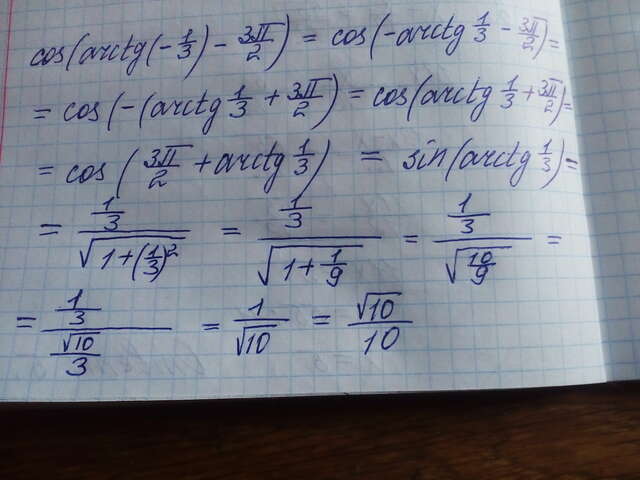 cos(arctg(-1/3) - 3π/2) = cos(-arctg 1/3 - 3π/2) =
= cos(-(arctg 1/3 + 3π/2) = cos(arctg 1/3 + 3π/2) =
= cos(3π/2 + arctg 1/3) = sin(arctg 1/3) =
= 1/3 / √(1+(1/3)²) = 1/3 / √(1+1/9) = 1/3 / √(10/9) =
= 1/3 / √10/3 = 1/√10 = √10/10